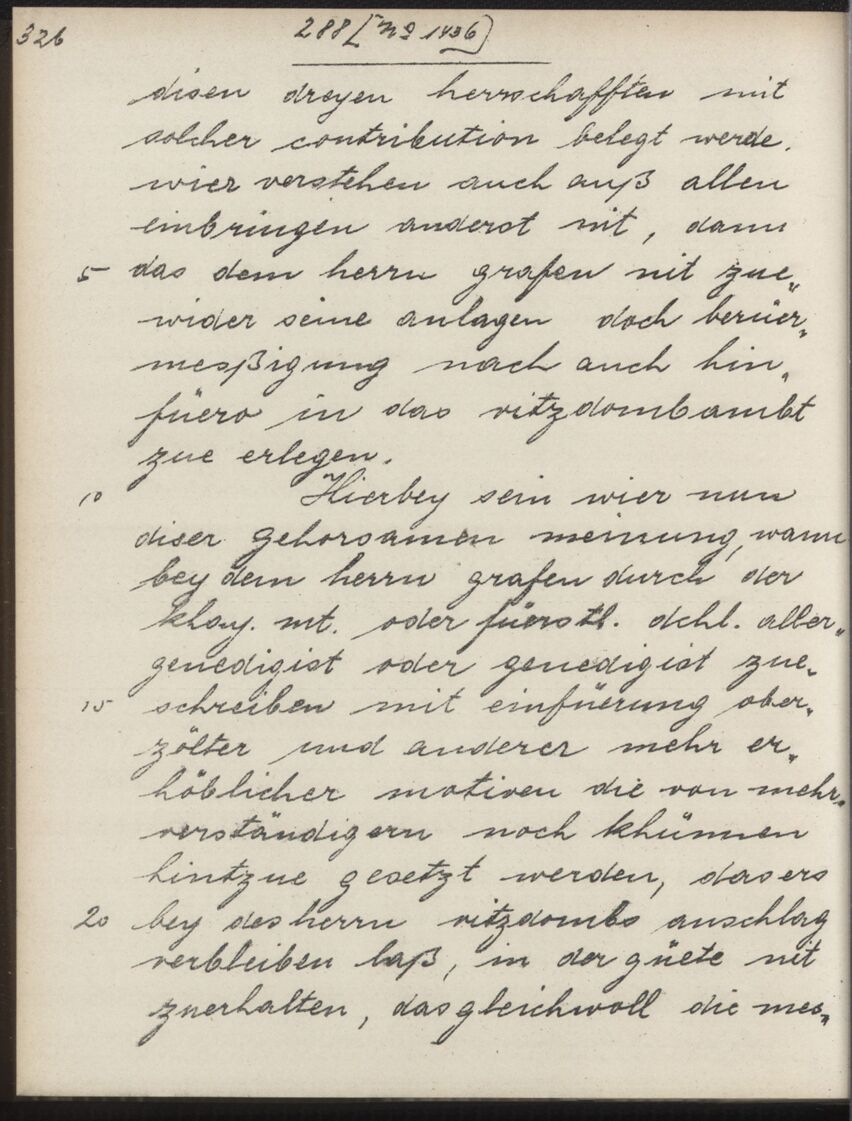 326
288 [No 1436]
disen dreyen herrschafften mit
solcher contribution belegt werde.
wier verstehen auch auß allen
einbringen anderst nit, dann
5 das dem herrn grafen nit zue„
wider seine anlagen doch
mesßigung nach auch hin„
füero in das vitzdombambt
zue erlegen.
10 Hierbey sein wier nun
diser gehorsamen meinung, wann
bey dem herrn grafen durch der
khay. mt. oder fürstl. dchl. aller„
genedigist oder genedigist zue„
15 schreiben mit einfüerung ober„
zölter und anderer mehr er„
höblicher motiven die von mehr„
verständigern noch khünnen
hintzue gesetzt werden, das ers
20 bey des herrn vitzdombs anschlag
verbleiben laß, in der güete nit
zuerhalten, das gleichwoll die mes„